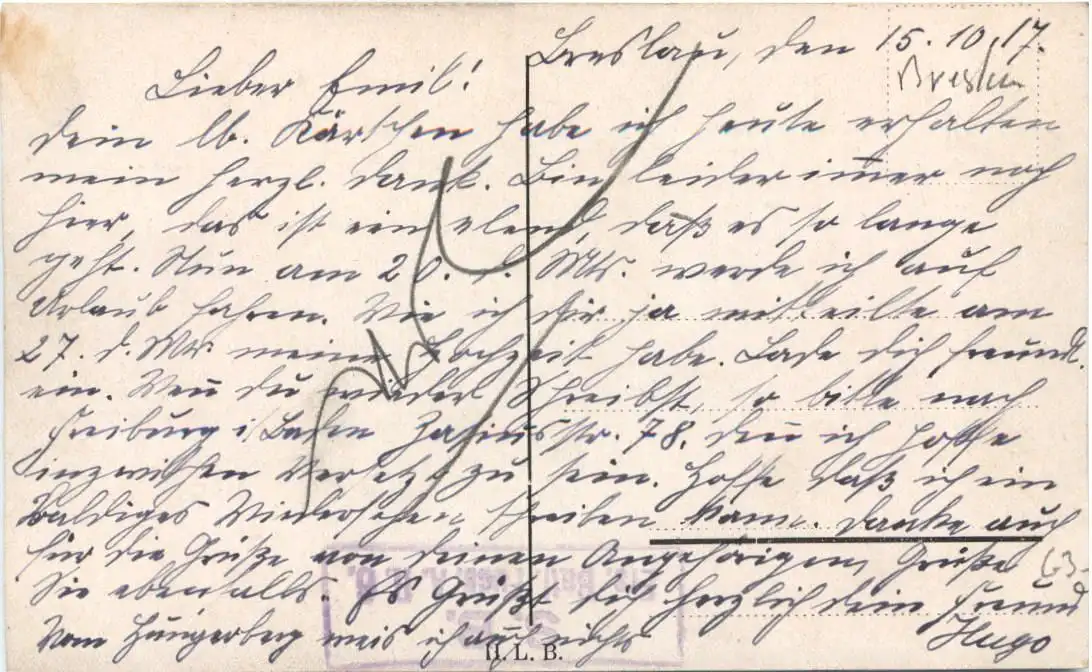 Breslau, den 15.10.17.
Breslau
Lieber Emil!
Dein lb. Kärtchen habe ich heute erhalten
mein herzl. Dank. Bin leider immer noch
hier, das ist ein elend, daß es so lange
geht. Nun am 20. d. Mts. werde ich auf
Urlaub fahren. Wie ich dir ja mitteilte am
27. d. Mts. meine Hochzeit habe. Lade dich freundl.
ein. Wen̄ du wieder Schreibst, so bitte nach
Freiburg i/Baden Zasiusstr. 78. den̄ ich hoffe
inzwischen versetzt zu sein. Hoffe daß ich ein
Baldiges Wiedersehen schreiben kann. Danke auch
für die Grüße von deinen Angehörigen, Grüße
Sie ebenalls. Es Grüßt dich herzlich dein Freund
Vom Hüngerberg weis ich auch nichts Hugo
H. L. B.